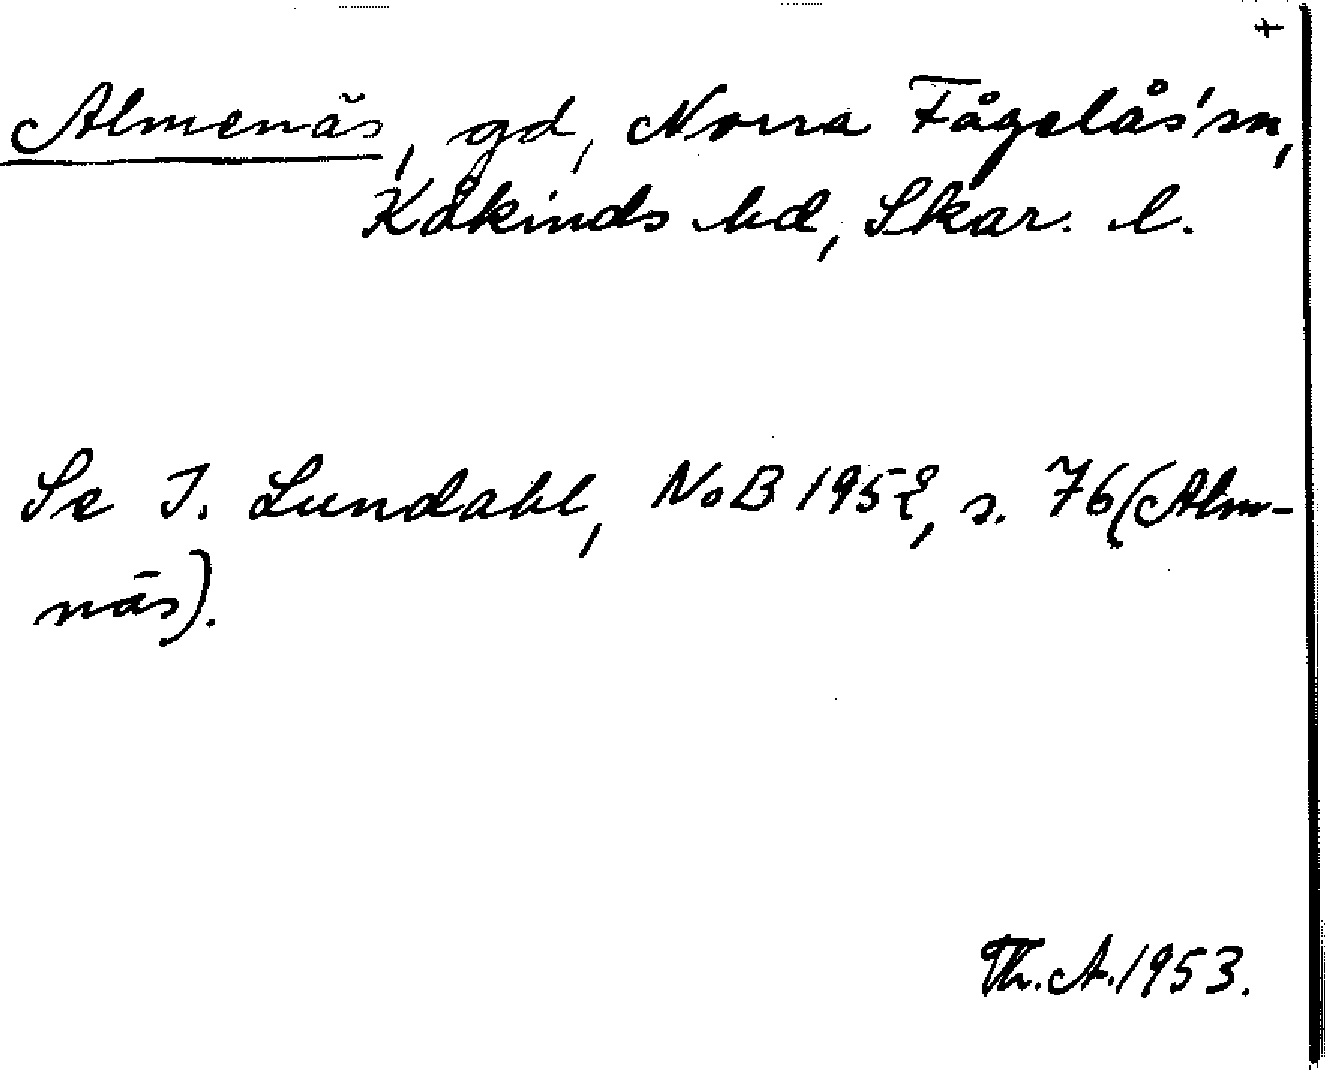 +
Almenäs, gd, Norra Fågelås' sn,
Kåkinds hd, Skar. l.
Se I. Lundahl, NoB 1952, s. 76 (Alm-
näs).
Th. A. 1953.